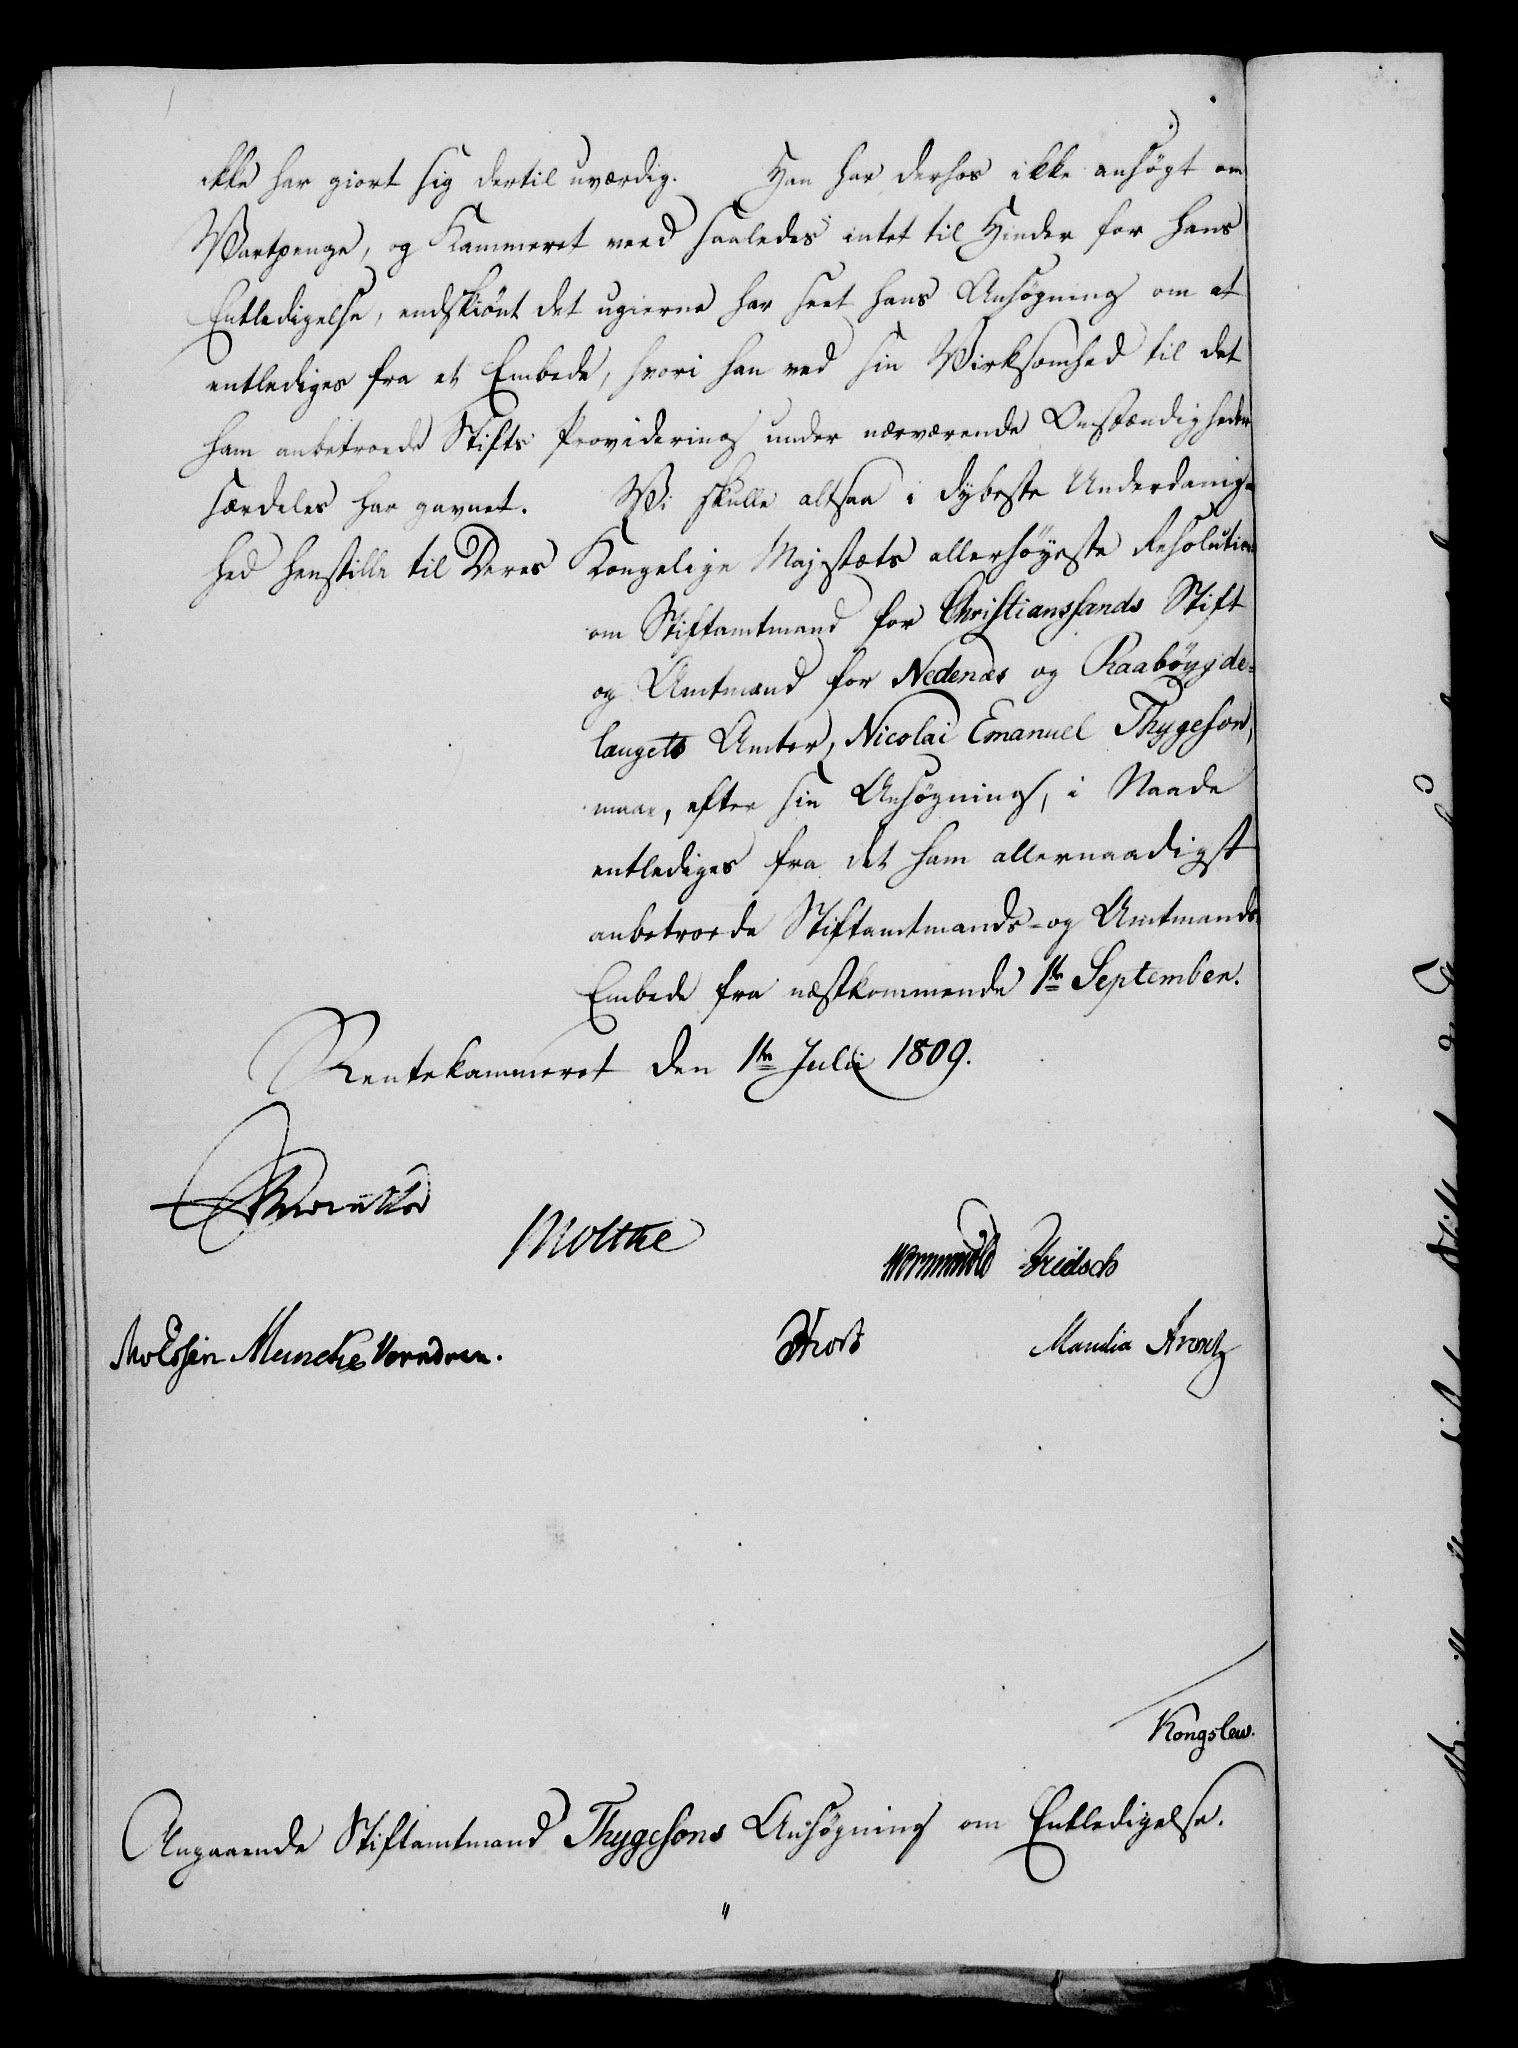 ikke har giort sig dertil uværdig. Han har derhos ikke ansøgt om
Vartpenge, og Kammeret veed saaledes intet til Hinder for hans
Entledigelse, endskiönt det ugierne har seet hans Ansøgning om at
entlediges fra et Embede, hvori han ved sin Virksomhed til det
ham anbetroede Stifts Providering under nærværende Omstændigheder
særdeles har gavnet. Vi skulle altsaa i dybeste Underdanig-
hed henstille til Deres Kongelige Majestæts allerhöyeste Resolution:
om Stiftamtmand for Christianssands Stift
og Amtmand for Nedenæs og Raabøygde-
laugets Amter, Nicolai Emanuel Thygeson,
maae, efter sin Ansøgning, i Naade
entlediges fra det ham allernaadigst
anbetroede Stiftamtmands- og Amtmands-
Embede fra næstkommende 1te September.
Rentekammeret den 1te Julii 1809.
Moltke
Wormskiold
Knoss
Kongslew.
Angaaende Stiftamtmand Thygesons Ansøgning om Entledigelse.